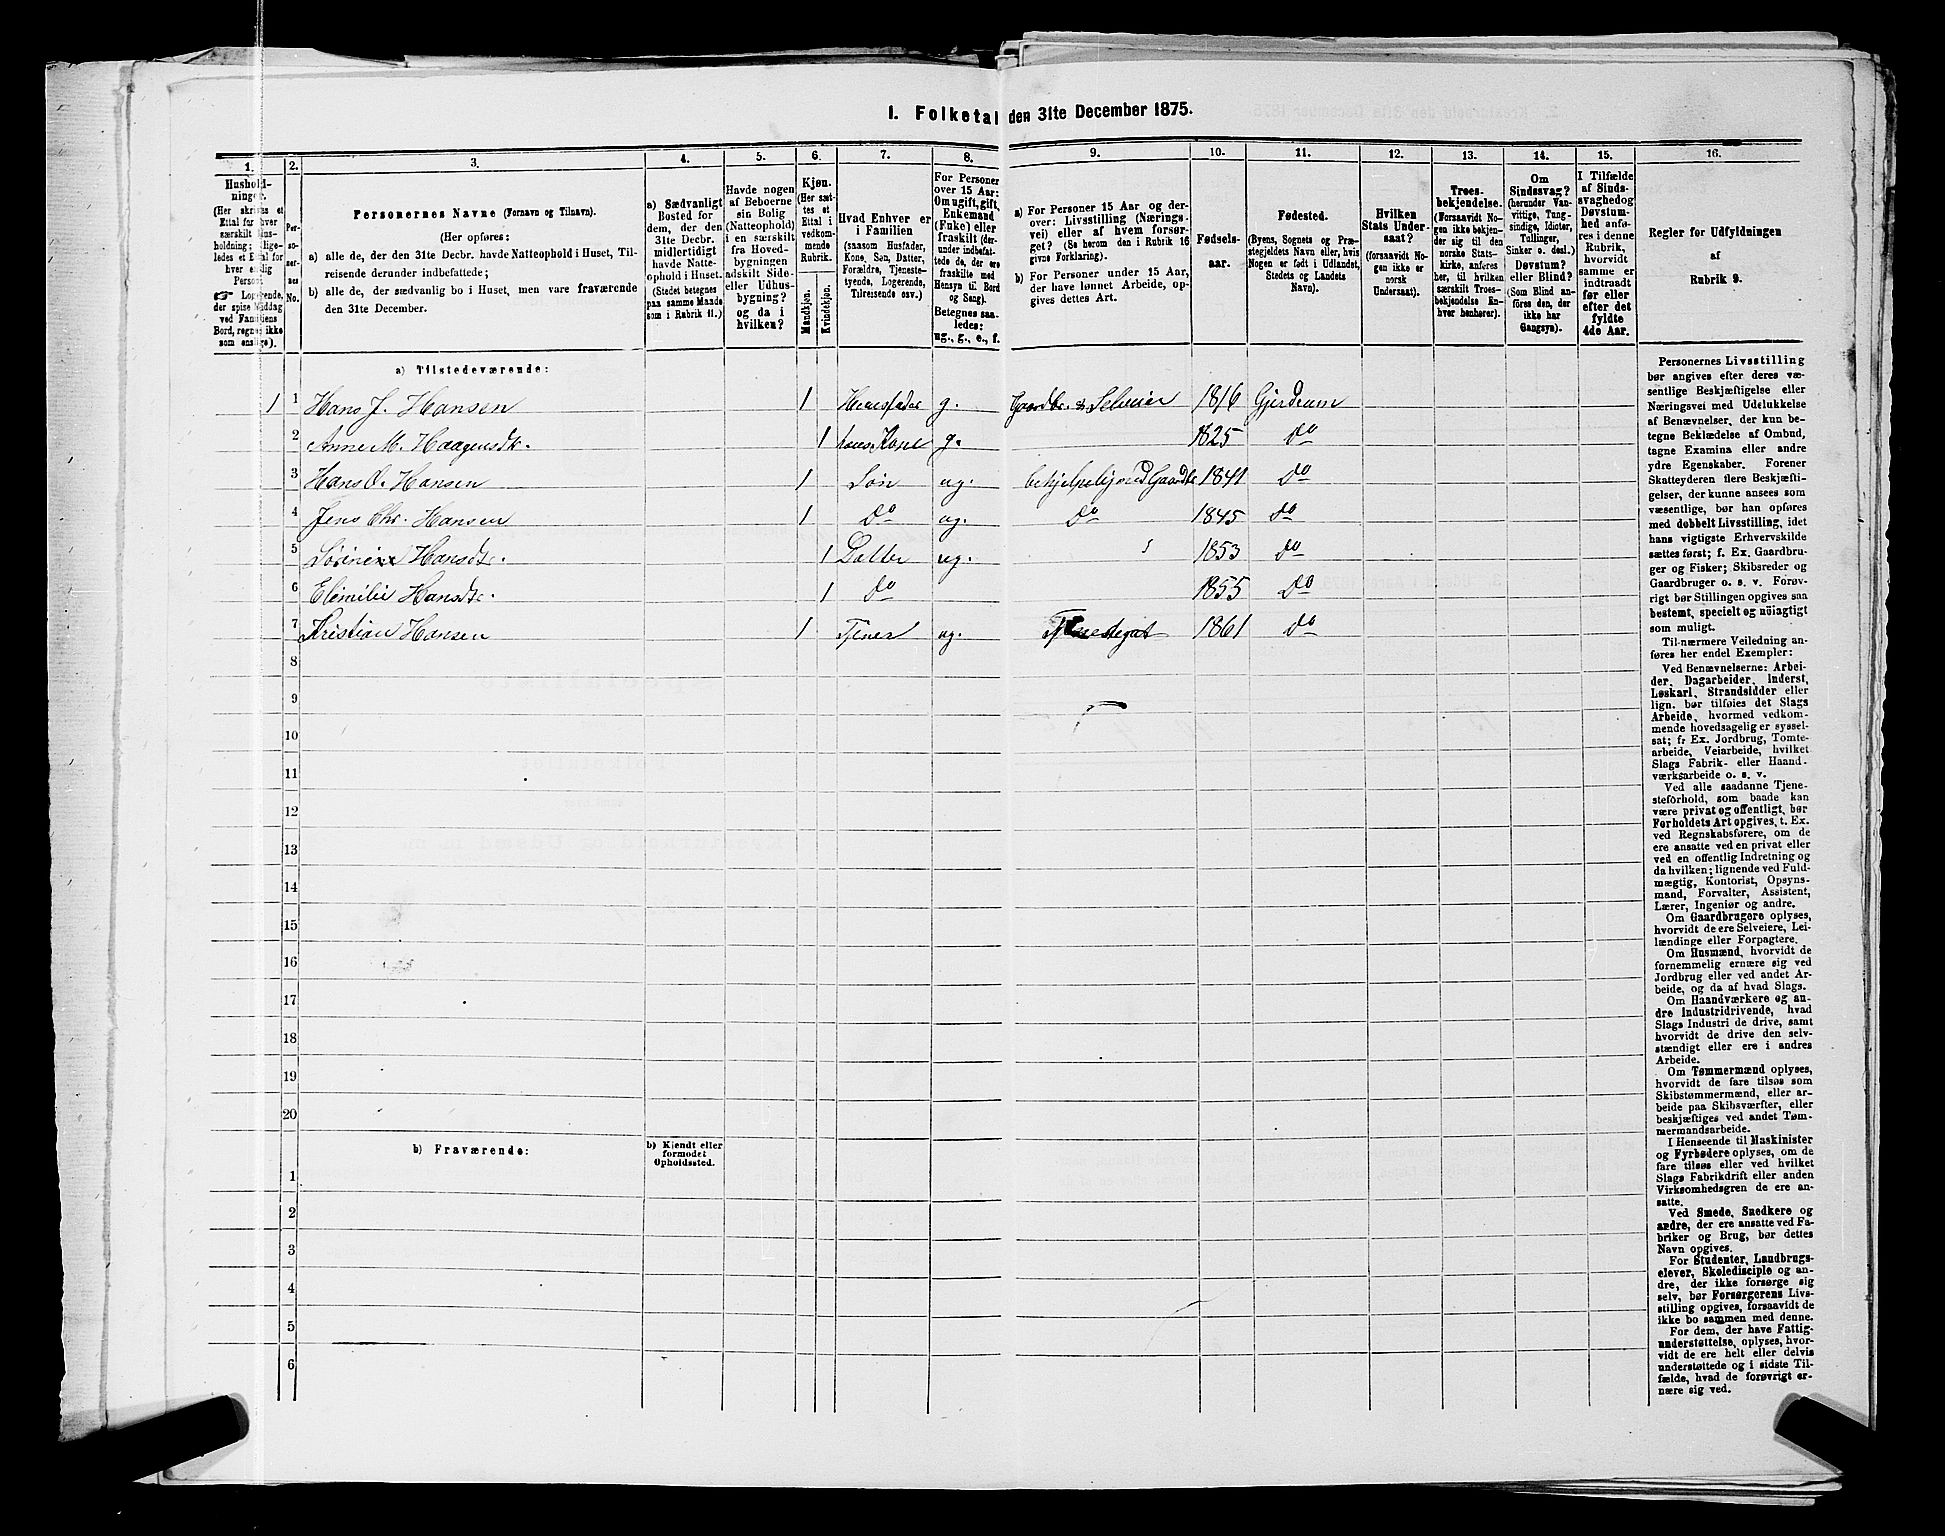 1. Folketal den 31te December 1875.
1. 2. 3. 4. 5. 6. 7. 8. 9. 10. 11. 12. 13. 14. 15. 16.
Hushold-
ninger.
(Her skrives et
Ettal for hver
særskilt Hus-
holdning; lige-
ledes et Ettal for
hver enslig
Person.
☞ Logerende,
der spise Middag
ved Familiens
Bord, regnes ikke
som enslige).
Per-
so-
ner-
nes
No.
Personernes Navne (Fornavn og Tilnavn).
(Her opføres:
a) alle de, der den 31te Decbr. havde Natteophold i Huset, Til-
reisende derunder indbefattede;
b) alle de, der sædvanlig bo i Huset, men vare fraværende
den 31te December.
a) Sædvanligt
Bosted for
dem, der den
31te Decbr.
midlertidigt
havde Natte-
ophold i Huset.
(Stedet betegnes
paa samme Maade
som i Rubrik 11.)
Havde nogen
af Beboerne
sin Bolig
(Natteophold)
i en særskilt
fra Hoved-
bygningen
adskilt Side-
eller Udhus-
bygning?
og da i
hvilken?
Kjøn.
(Her sæt-
tes et
Ettal i
vedkom-
mende
Rubrik.
Mandkjøn.
Kvindekjøn.
Hvad Enhver er
i Familien
(saasom Husfader,
Kone, Søn, Datter,
Forældre, Tjeneste-
tyende, Logerende,
Tilreisende osv.)
For Personer
over 15 Aar:
Om ugift, gift,
Enkemand
(Enke) eller
fraskilt (der-
under indbefat-
tede de, der ere
fraskilte med
Hensyn til Bord
og Seng).
Betegnes saa-
ledes:
ug., g., e., f.
a) For Personer 15 Aar og der-
over: Livsstilling (Nærings-
vei) eller af hvem forsør-
get? (Se herom den i Rubrik 16
givne Forklaring).
b) For Personer under 15 Aar,
der have lønnet Arbeide, op-
gives dettes Art.
Fødsels-
aar.
Fødested.
(Byens, Sognets og Præ-
stegjeldets Navn eller, hvis
Nogen er født i Udlandet,
Stedets og Landets
Navn).
Hvilken
Stats Under-
saat?
(forsaavidt No-
gen ikke er
norsk
Undersaat).
Troes-
bekjendelse.
(Forsaavidt No-
gen ikke bekjen-
der sig til den
norske Stats-
kirke, anføres
her, til hvilken
særskilt Troes-
bekjendelse En-
hver henhører).
Om
Sindssvag?
(herunder Van-
vittige, Tung-
sindige, Idioter,
Tullinger,
Sinker o. desl.)
Døvstum?
eller Blind?
(Som Blind an-
føres den, der
ikke har
Gangsyn).
I Tilfælde
af Sinds-
svaghed og
Døvstum-
hed anfø-
res i denne
Rubrik,
hvorvidt
samme er
indtraadt
før eller
efter det
fyldte
4de Aar.
Regler for Udfyldningen
af
Rubrik 9.
a) Tilstedeværende:
1 1 Hans J. Hansen 1 Huusfader g. Gaardbr. & Selveier 1816 Gjerdrum
2 Anne M. Haagensdtr. 1 hans Kone g. 1825 do
3 Hans O. Hansen 1 Søn ug. behjelpelig med Gaardbr. 1841 do
4 Jens Chr. Hansen 1 do ug. do 1845 do
5 Hansdtr. 1 Datter ug. 1853 do
6 Hansdtr. 1 do 1855 do
7 Kristian Hansen 1 Tjener ug. 1861 do
8
9
10
11
12
13
14
15
16
17
18
19
20
b) Fraværende:
b) Kjendt eller
formodet
Opholdssted.
1
2
3
4
5
6
Personernes Livsstilling
bør angives efter deres væ-
sentlige Beskjæftigelse eller
Næringsvei med Udelukkelse
af Benævnelser, der kun be-
tegne Beklædelse af Ombud,
tagne Examina eller andre
ydre Egenskaber. Forener
Skatteyderen flere Beskjæfti-
gelser, der kunne ansees som
væsentlige, bør han opføres
med dobbelt Livsstilling, idet
hans vigtigste Erhvervskilde
sættes først; f. Ex. Gaardbru-
ger og Fisker; Skibsreder og
Gaardbruger o. s. v. Forøv-
rigt bør Stillingen opgives saa
bestemt, specielt og nøiagtigt
som muligt.
Til nærmere Veiledning an-
føres her endel Exempler:
Ved Benævnelserne: Arbei-
der, Dagarbeider, Inderst,
Løskarl, Strandsidder eller
lign. bør tilføies det Slags
Arbeide, hvormed vedkom-
mende hovedsagelig er syssel-
sat; f. Ex. Jordbrug, Tomte-
arbeide, Veiarbeide, hvilket
Slags Fabrik- eller Haand-
værksarbeide o. s. v.
Ved alle saadanne Tjene-
steforhold, som baade kan
være privat og offentligt, bør
Forholdets Art opgives, t. Ex.
ved Regnskabsførere, om de
ere ansatte ved en privat eller
ved en offentlig Indretning og
da hvilken; lignende ved Fuld-
mægtig, Kontorist, Opsyns-
mand, Forvalter, Assistent,
Lærer, Ingeniør og andre.
Om Gaardbrugere oplyses,
hvorvidt de ere Selveiere, Lei-
lændinge eller Forpagtere.
Om Husmænd, hvorvidt de
fornemmelig ernære sig ved
Jordbrug eller ved andet Ar-
beide, og da af hvad Slags.
Om Haandværkere og an-
dre Industridrivende, hvad
Slags Industri de drive, samt
hvorvidt de drive den selv-
stændigt eller ere i andres
Arbeide.
Om Tømmermænd oplyses,
hvorvidt de fare tilsøs som
Skibstømmermænd, eller ar-
beide paa Skibsværfter, eller
beskjæftiges ved andet Tøm-
mermandsarbeide.
I Henseende til Maskinister
og Fyrbødere oplyses, om de
fare tilsøs eller ved hvilket
Slags Fabrikdrift eller anden
Virksomhedsgren de ere an-
satte.
Ved Smede, Snedkere og
andre, der ere ansatte ved Fa-
briker og Brug, bør dettes
Navn opgives.
For Studenter, Landbrugs-
elever, Skoledisciple og an-
dre, der ikke forsørge sig
selv, bør Forsørgerens Livs-
stilling opgives, forsaavidt de
ikke bo sammen med denne.
For dem, der have Fattig-
understøttelse, oplyses, hvor-
vidt de ere helt eller delvis
understøttede og i sidste Til-
fælde, hvad de forøvrigt er-
nære sig ved.